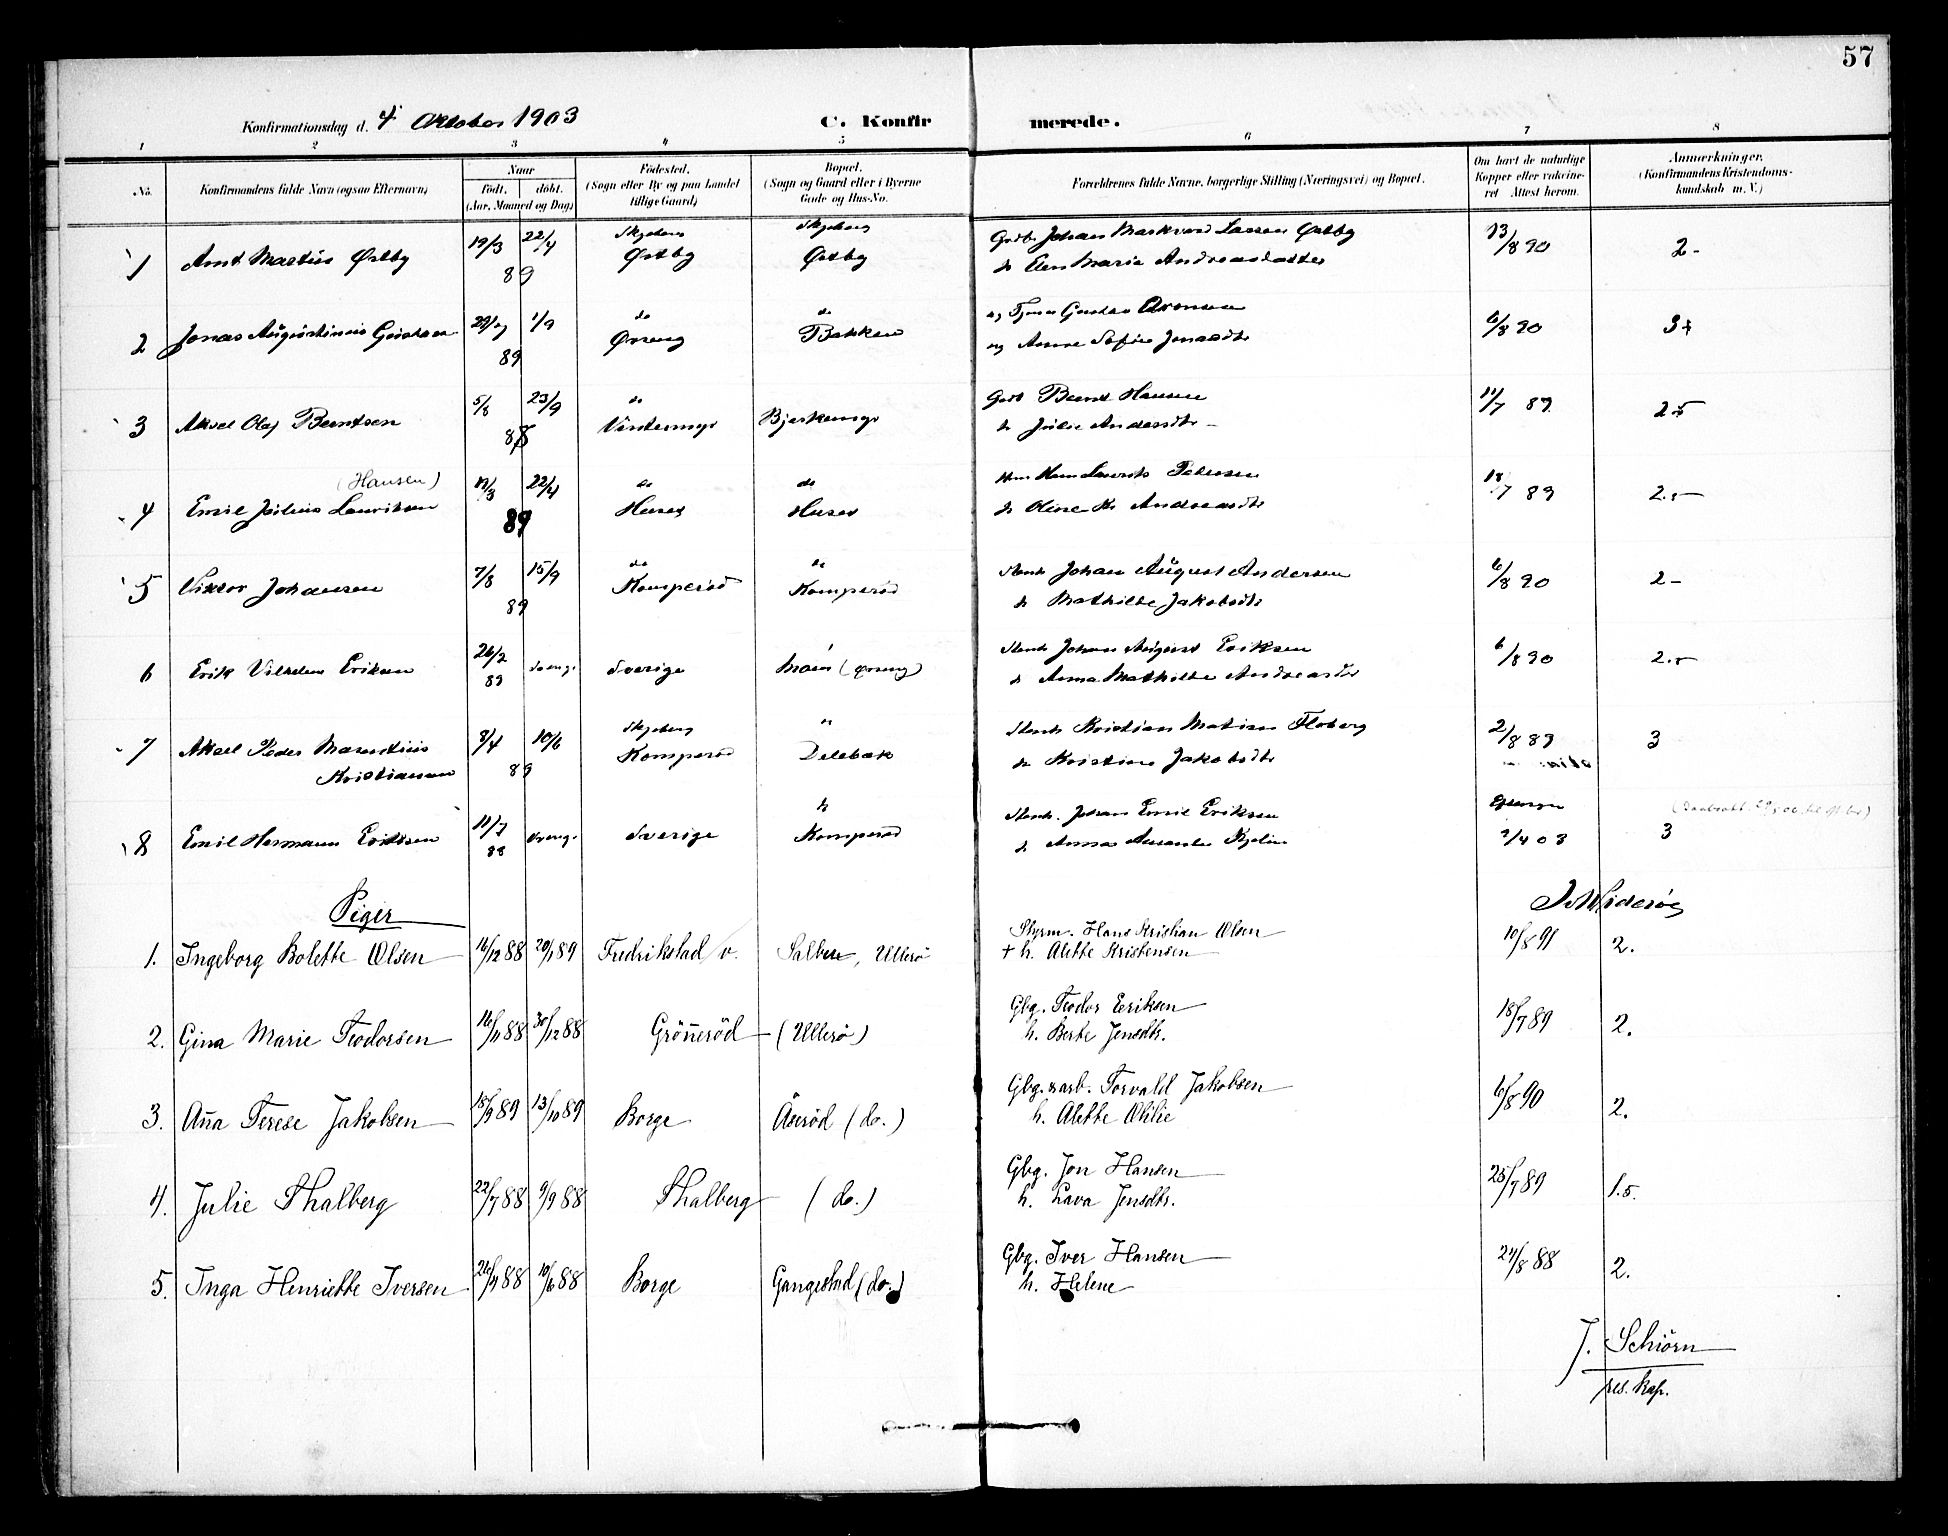 57
Konfirmationsdag d. 4 Oktober 1903 C. Konfirmerede.
1 2 3 4 5 6 7 8
No. Konfirmandens fulde Navn (ogsaa Efternavn) Naar Födested. Bopæl. Forældrenes fulde Navne, borgerlige Stilling (Næringsvei) og Bopæl. Om havt de naturlige Anmærkninger.
födt. döbt. (Sogn eller By og paa Landet (Sogn og Gaard eller i Byerne Kopper eller vakcine- (Konfirmandens Kristendoms-
(Aar, Maaned og Dag) tillige Gaard) Gade og Hus-No. ret Attest herom. kundskab m. V.)
1 Arnt Martin Østby 19/3 22/4 89 Skjeberg Østby Skjeberg Østby Johan Markvard Larsen Østby 13/8 90 2-
h Elen Marie Andreasdatter
2 Jonas Augustinus Gustavsen 29/7 1/9 89 do Øsreng do Bakken Gustav Aronsen 6/8 90 3
og Anne Sofie Jonasdtr
3 Aksel Olaf Berntsen 5/8 23/9 88 do Vintermyr Bjerkemyr Bernt Hansen 11/7 89 2.5
h Julie Andersdtr -
(Hansen)
4 Emil Julius Lauritsen 19/3 22/4 89 do Huser do Huser Hans Laurits Petersen 18/7 89 2.5
h Oline Kr Andreasdtr
5 Viktor Johansen 7/8 15/9 89 do Komperød do Komperød Stenh Johan August Andersen 6/8 90 2-
h Mathilde Jakobsdtr
6 Erik Vilhelm Eriksen 26/2 89 Sverige Sverige Moen (Øsreng) Stenh Johan August Eriksen 6/8 90 2.5
h Anna Mathilde Andreasdtr
7 Aksel Peder Marentius Kristiansen 8/4 10/6 89 Skjeberg Komperød " Delebæk Stenh Kristian Matias Floberg 2/8 89 3
h Kristine Jakobsdtr
8 Emil Hermann Eriksen 11/7 88 Sverige Sverige h Komperød Stenh. Johan Emil Eriksen 2/4 03 3
h Anna
Piger
1. Ingeborg Bolette Olsen 16/12 88 20/1 89 Fredrikstad v. , Ullerö Styrm. Hans Kristian Olsen 10/8 91 2.
+ h. Alette Kristensen
2. Gina Marie Teodorsen 16/11 88 30/12 88 Grönneröd (Ullerö) Gbg. Teodor Eeriksen 18/7 89 2.
h. Berte Jensdtr.
3. Anna Terese Jakobsen 18/9 89 13/10 89 Borge Åseröd (do.) Gbg. & arb. Torvald Jakobsen 6/8 90 2.
h. Alette Otilie
4. Julie Thalberg 22/7 88 9/9 88 Thalberg (do.) Gbg. Jon Hansen 25/7 89 1.5.
h. Lava Jensdtr.
5. Inga Henriette Iversen 26/4 88 10/6 88 Borge Gangestad (do.) Gbg. Iver Hansen 24/8 88 2.
h. Helene
J. Schiörn
res. kap.